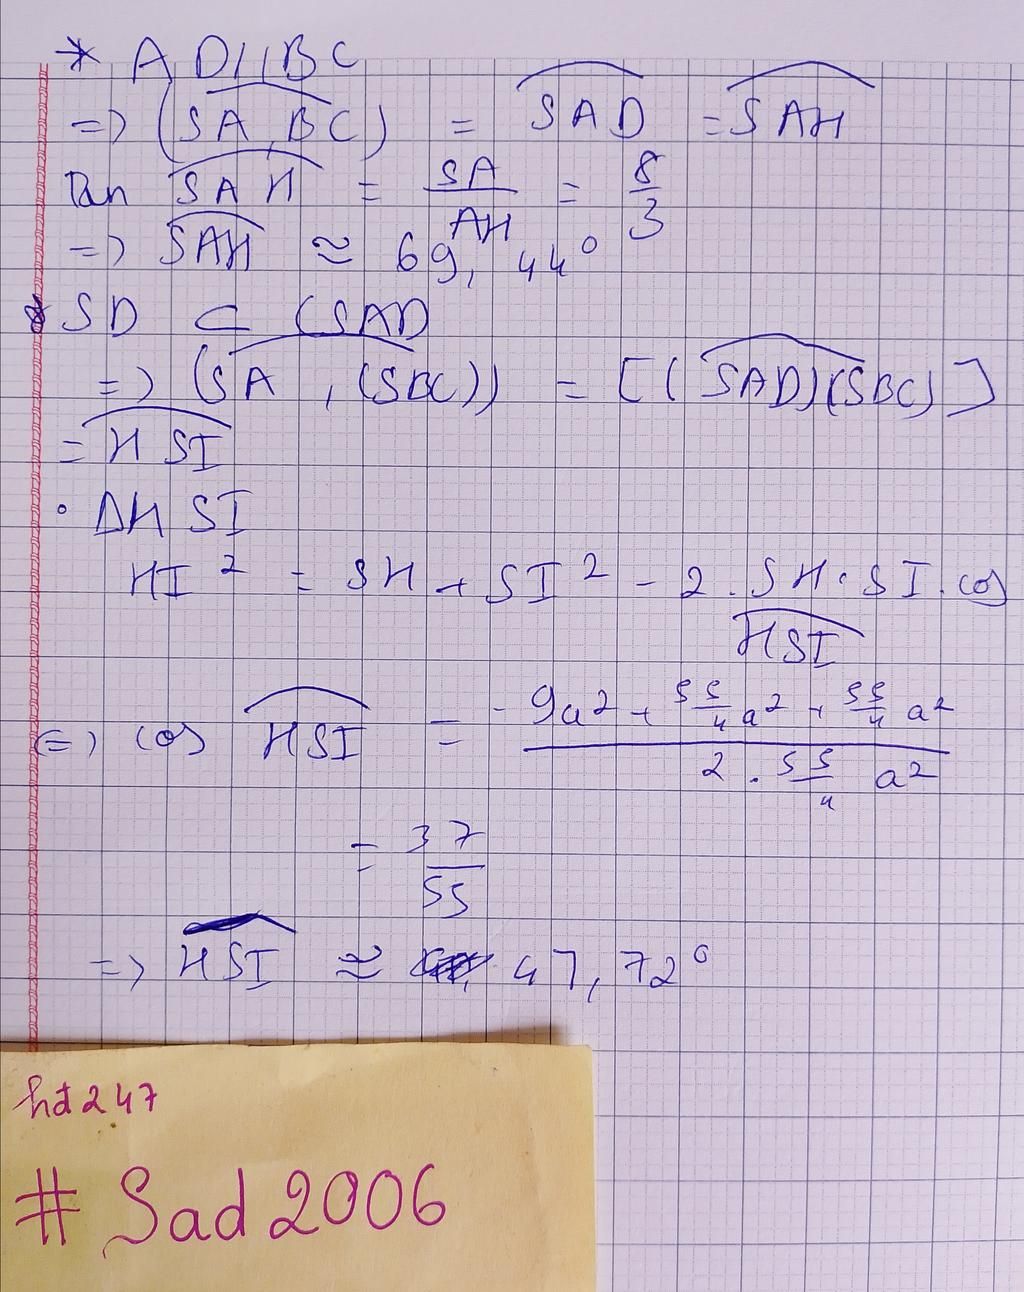 * AD//BC
=> (SA, BC) = SAD = SAH
Tan SAH = SA/AH = 8/3
=> SAH ≈ 69,44°
* SD ⊂ (SAD
=> (SA, (SBC)) = [(SAD)(SBC)]
= HSI
• ΔHSI
HI² = SH + SI² - 2.SH.SI.cos
HSI
(=) cos HSI = (-9a² + 55/4 a² + 55/4 a²)/(2 . 55/4 a²)
= 37/55
=> HSI ≈ 47,72°
hđ247
# Sad2006